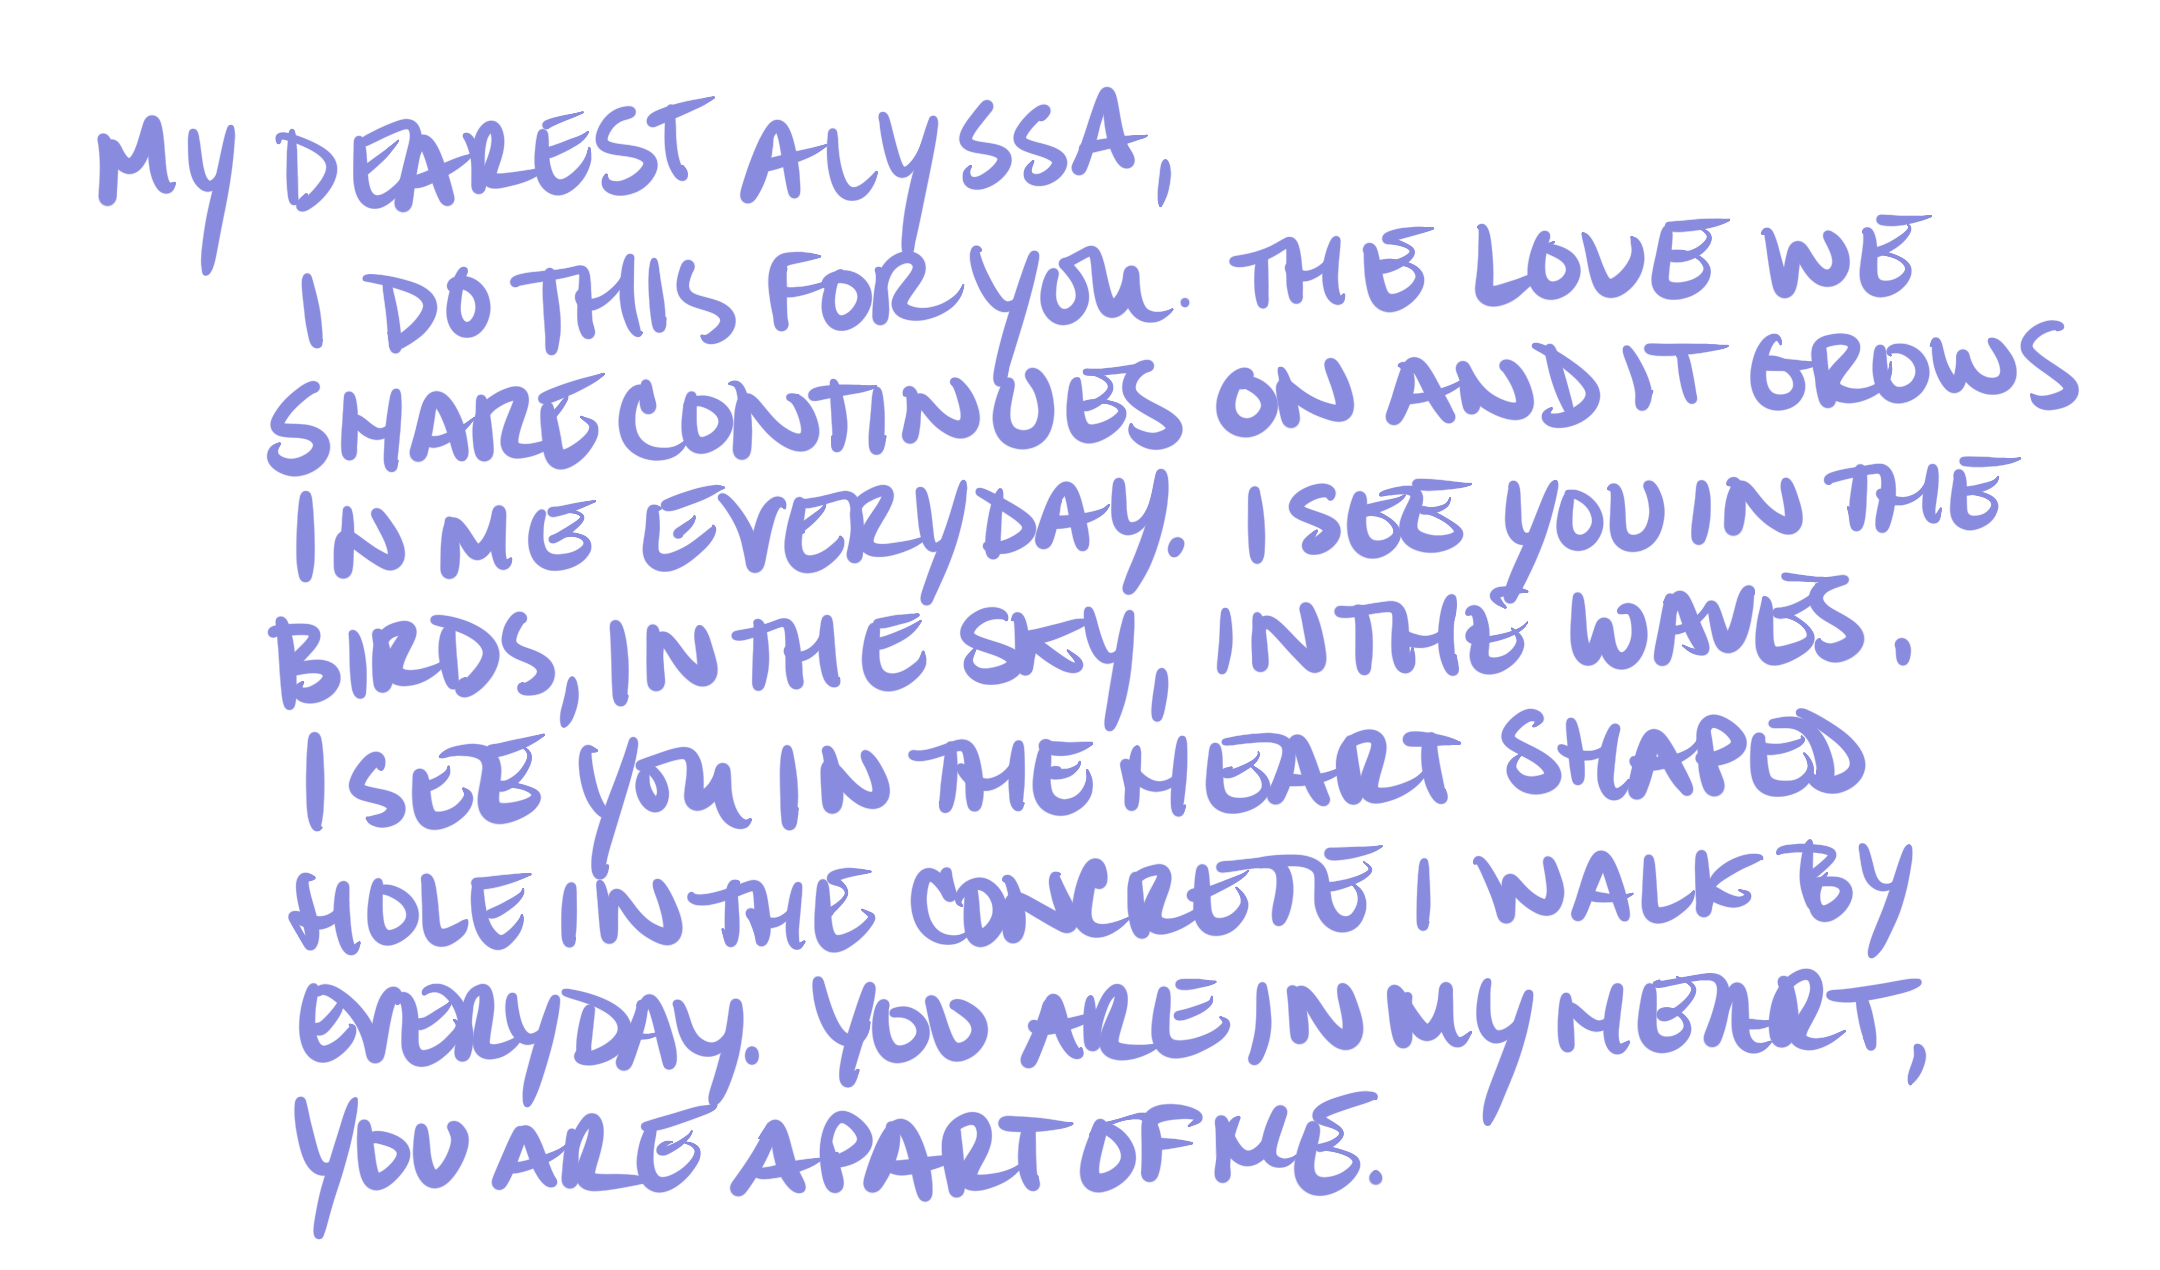 MY DEAREST ALYSSA,
I DO THIS FOR YOU. THE LOVE WE
SHARE CONTINUES ON AND IT GROWS
IN ME EVERYDAY. I SEE YOU IN THE
BIRDS, IN THE SKY, IN THE WAVES.
I SEE YOU IN THE HEART SHAPED
HOLE IN THE CONCRETE I WALK BY
EVERYDAY. YOU ARE IN MY HEART,
YOU ARE A PART OF ME.